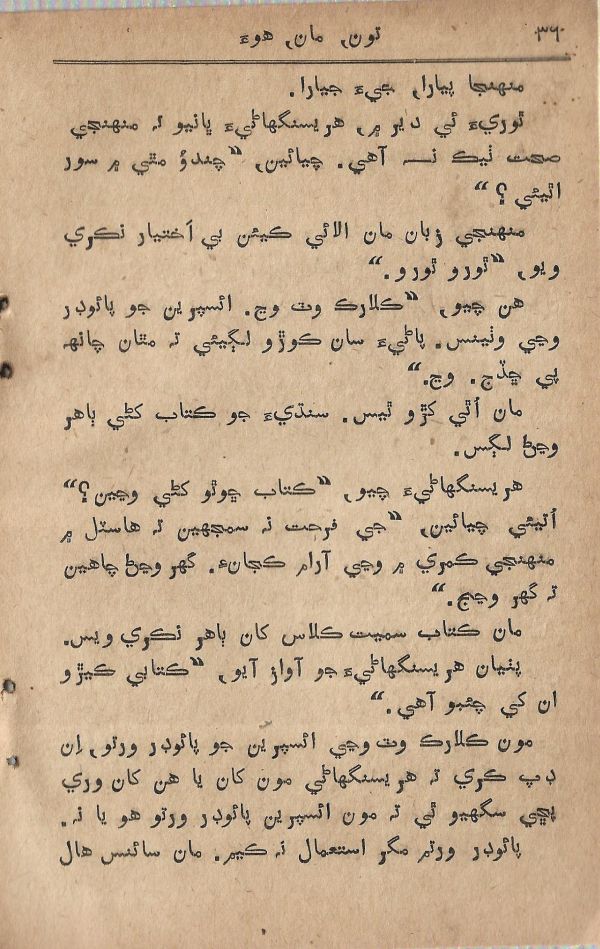 ٣٦٠
تون، مان، هوءَ
منهنجا پيارا، جيءَ جيارا.
ٿوريءَ ئي دير ۾، هريسنگهاڻيءَ ڀانيو تہ منهنجي
صحت ٺيڪ نہ آهي. چيائين، “چندوُ مٿي ۾ سور
اٿيئي؟“
منهنجي زبان مان الائي ڪيئن بي اَختيار نڪري
ويو، “ٿورو ٿورو.“
هن چيو، “ڪلارڪ وٽ وڃ. ائسپرين جو پائوڊر
وڃي وٺينس. پاڻيءَ سان ڪوڙو لڳيئي تہ مٿان چانهہ
پي ڇڏج. وڃ.“
مان اُٿي کڙو ٿيس. سنڌيءَ جو ڪتاب کڻي ٻاهر
وڃڻ لڳس.
هريسنگهاڻيءَ چيو، “ڪتاب ڇوٿو کڻي وڃين؟“
اُتيئي چيائين، “جي فرحت نہ سمجهين تہ هاسٽل ۾
منهنجي ڪمري ۾ وڃي آرام ڪجانءِ. گهر وڃڻ چاهين
تہ گهر وڃج.“
مان ڪتاب سميت ڪلاس کان ٻاهر نڪري ويس.
پٺيان هريسنگهاڻيءَ جو آواز آيو، “ڪتابي ڪيڙو
ان کي چئبو آهي.“
مون ڪلارڪ وٽ وڃي ائسپرين جو پائوڊر ورتو، اِن
ڊپ ڪري تہ هريسنگهاڻي مون کان يا هن کان وري
پڇي سگهيو ٿي تہ مون ائسپرين پائوڊر ورتو هو يا نہ.
پائوڊر ورتم مگر استعمال نہ ڪيم. مان سائنس هال